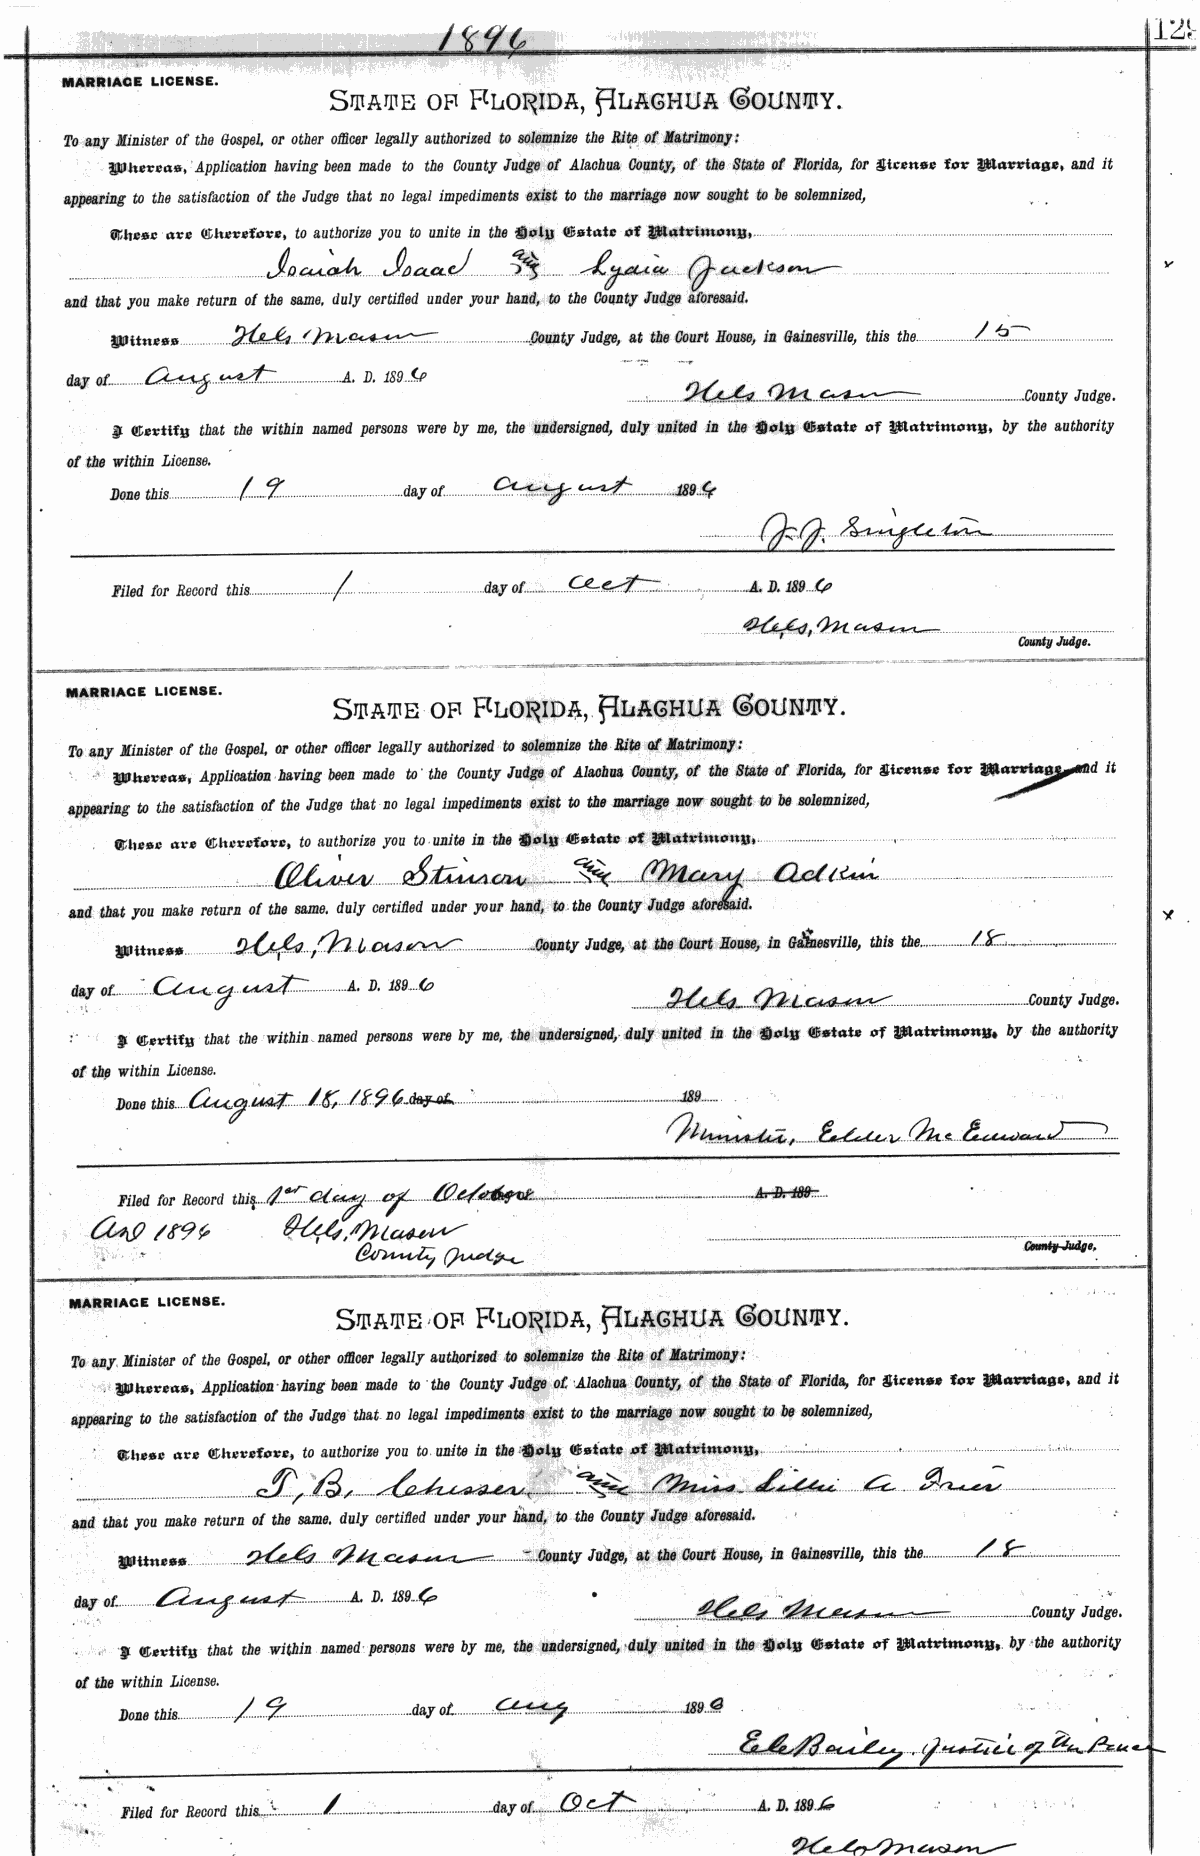 1896
129
MARRIAGE LICENSE.
STATE OF FLORIDA, ALACHUA COUNTY.
To any Minister of the Gospel, or other officer legally authorized to solemnize the Rite of Matrimony:
Whereas, Application having been made to the County Judge of Alachua County, of the State of Florida, for License for Marriage, and it
appearing to the satisfaction of the Judge that no legal impediments exist to the marriage now sought to be solemnized,
These are Therefore, to authorize you to unite in the Holy Estate of Matrimony,
Isaiah Isaac and Lydia Jackson
and that you make return of the same, duly certified under your hand, to the County Judge aforesaid.
Witness Mason County Judge, at the Court House, in Gainesville, this the 15
day of August A. D. 1896
Mason County Judge.
I Certify that the within named persons were by me, the undersigned, duly united in the Holy Estate of Matrimony, by the authority
of the within License.
Done this 19 day of August 1896
J. J. Singleton
Filed for Record this 1 day of Oct A. D. 1896
Mason
County Judge.
MARRIAGE LICENSE.
STATE OF FLORIDA, ALACHUA COUNTY.
To any Minister of the Gospel, or other officer legally authorized to solemnize the Rite of Matrimony:
Whereas, Application having been made to the County Judge of Alachua County, of the State of Florida, for License for Marriage, and it
appearing to the satisfaction of the Judge that no legal impediments exist to the marriage now sought to be solemnized,
These are Therefore, to authorize you to unite in the Holy Estate of Matrimony,
Oliver Stinson and Mary Adkin
and that you make return of the same, duly certified under your hand, to the County Judge aforesaid.
Witness Mason County Judge, at the Court House, in Gainesville, this the 18
day of August A. D. 1896
Mason County Judge.
I Certify that the within named persons were by me, the undersigned, duly united in the Holy Estate of Matrimony, by the authority
of the within License.
Done this August 18, 1896 day of 189
Minister, Elder McEdward
Filed for Record this 1st day of October A. D. 189
AD 1896 Mason
County Judge
County Judge.
MARRIAGE LICENSE.
STATE OF FLORIDA, ALACHUA COUNTY.
To any Minister of the Gospel, or other officer legally authorized to solemnize the Rite of Matrimony:
Whereas, Application having been made to the County Judge of Alachua County, of the State of Florida, for License for Marriage, and it
appearing to the satisfaction of the Judge that no legal impediments exist to the marriage now sought to be solemnized,
These are Therefore, to authorize you to unite in the Holy Estate of Matrimony,
T. B. Chesser and Miss Lillie A Frier
and that you make return of the same, duly certified under your hand, to the County Judge aforesaid.
Witness Mason County Judge, at the Court House, in Gainesville, this the 18
day of August A. D. 1896
Mason County Judge.
I Certify that the within named persons were by me, the undersigned, duly united in the Holy Estate of Matrimony, by the authority
of the within License.
Done this 19 day of Aug 1896
Bailey, Justice of the Peace
Filed for Record this 1 day of Oct A. D. 1896
Mason